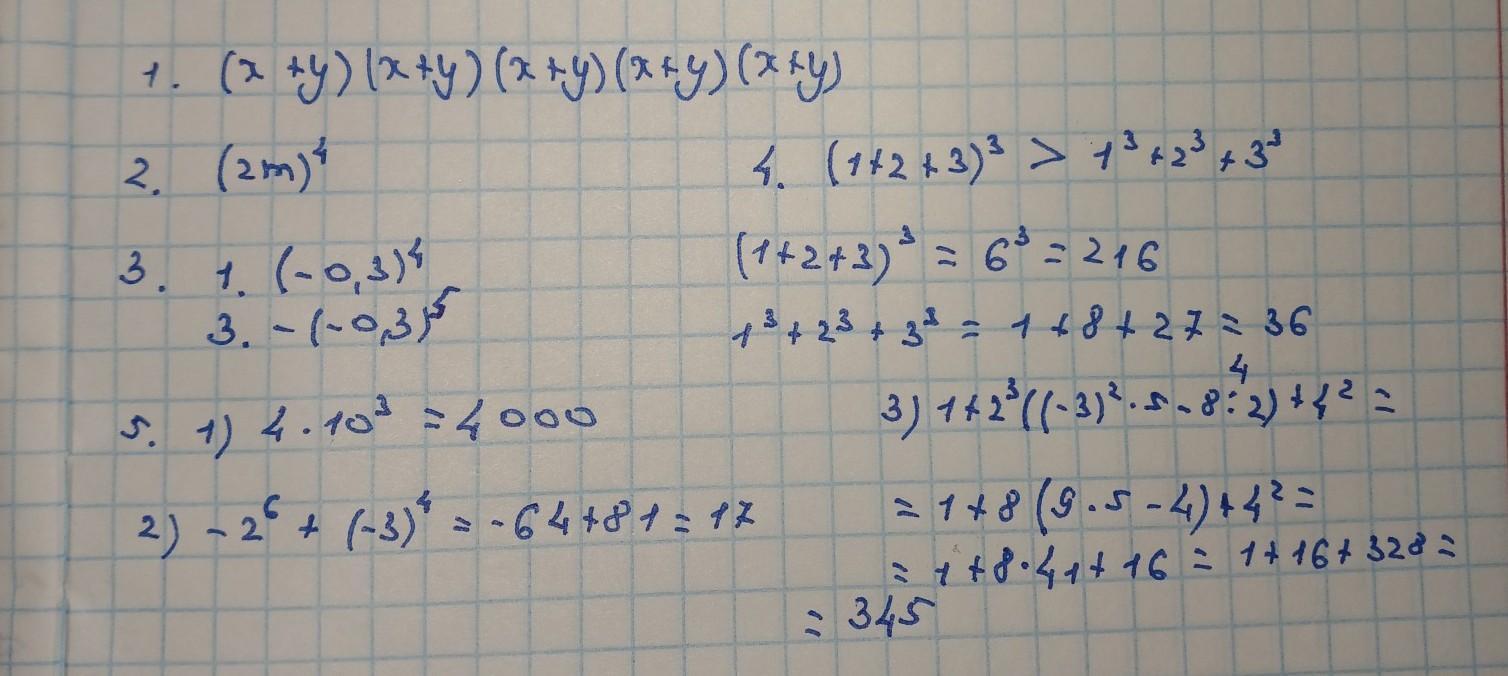 1. (x+y)(x+y)(x+y)(x+y)(x+y)
2. (2m)⁴
3. 1. (-0,3)⁴
3. -(-0,3)⁵
4. (1+2+3)³ > 1³+2³+3³
(1+2+3)³ = 6³ = 216
1³+2³+3³ = 1+8+27 = 36
5. 1) 4·10³ = 4000
2) -2⁶ + (-3)⁴ = -64+81 = 17
4
3) 1+2³((-3)²·5-8:2)+4² =
= 1+8(9·5-4)+4² =
= 1+8·41+16 = 1+16+328 =
= 345